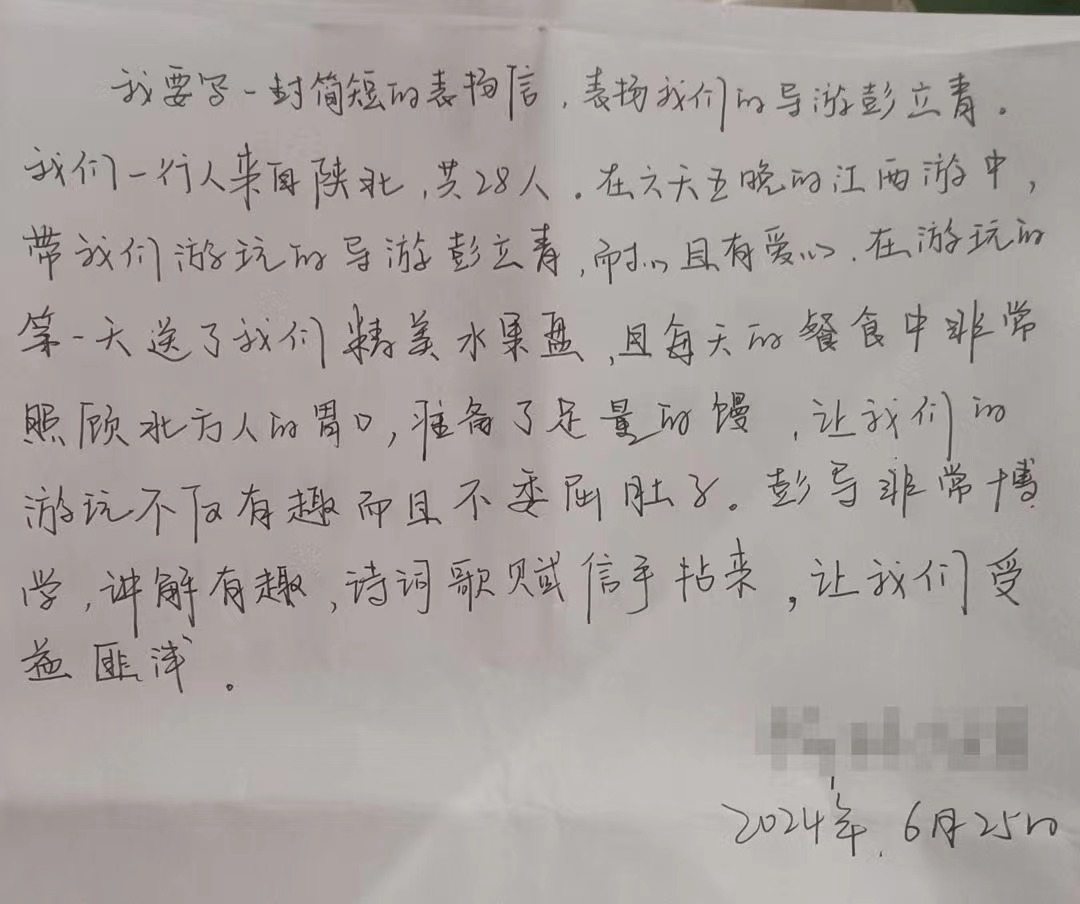 我要写一封简短的表扬信,表扬我们的导游彭立青。
我们一行人来自陕北,共28人。在六天五晚的江西游中,
带我们游玩的导游彭立青,耐心且有爱心。在游玩的
第一天送了我们精美水果盘,且每天的餐食中非常
照顾北方人的胃口,准备了足量的馒,让我们的
游玩不仅有趣而且不委屈肚子。彭导非常博
学,讲解有趣,诗词歌赋信手拈来,让我们受
益匪浅。
2024年.6月25日